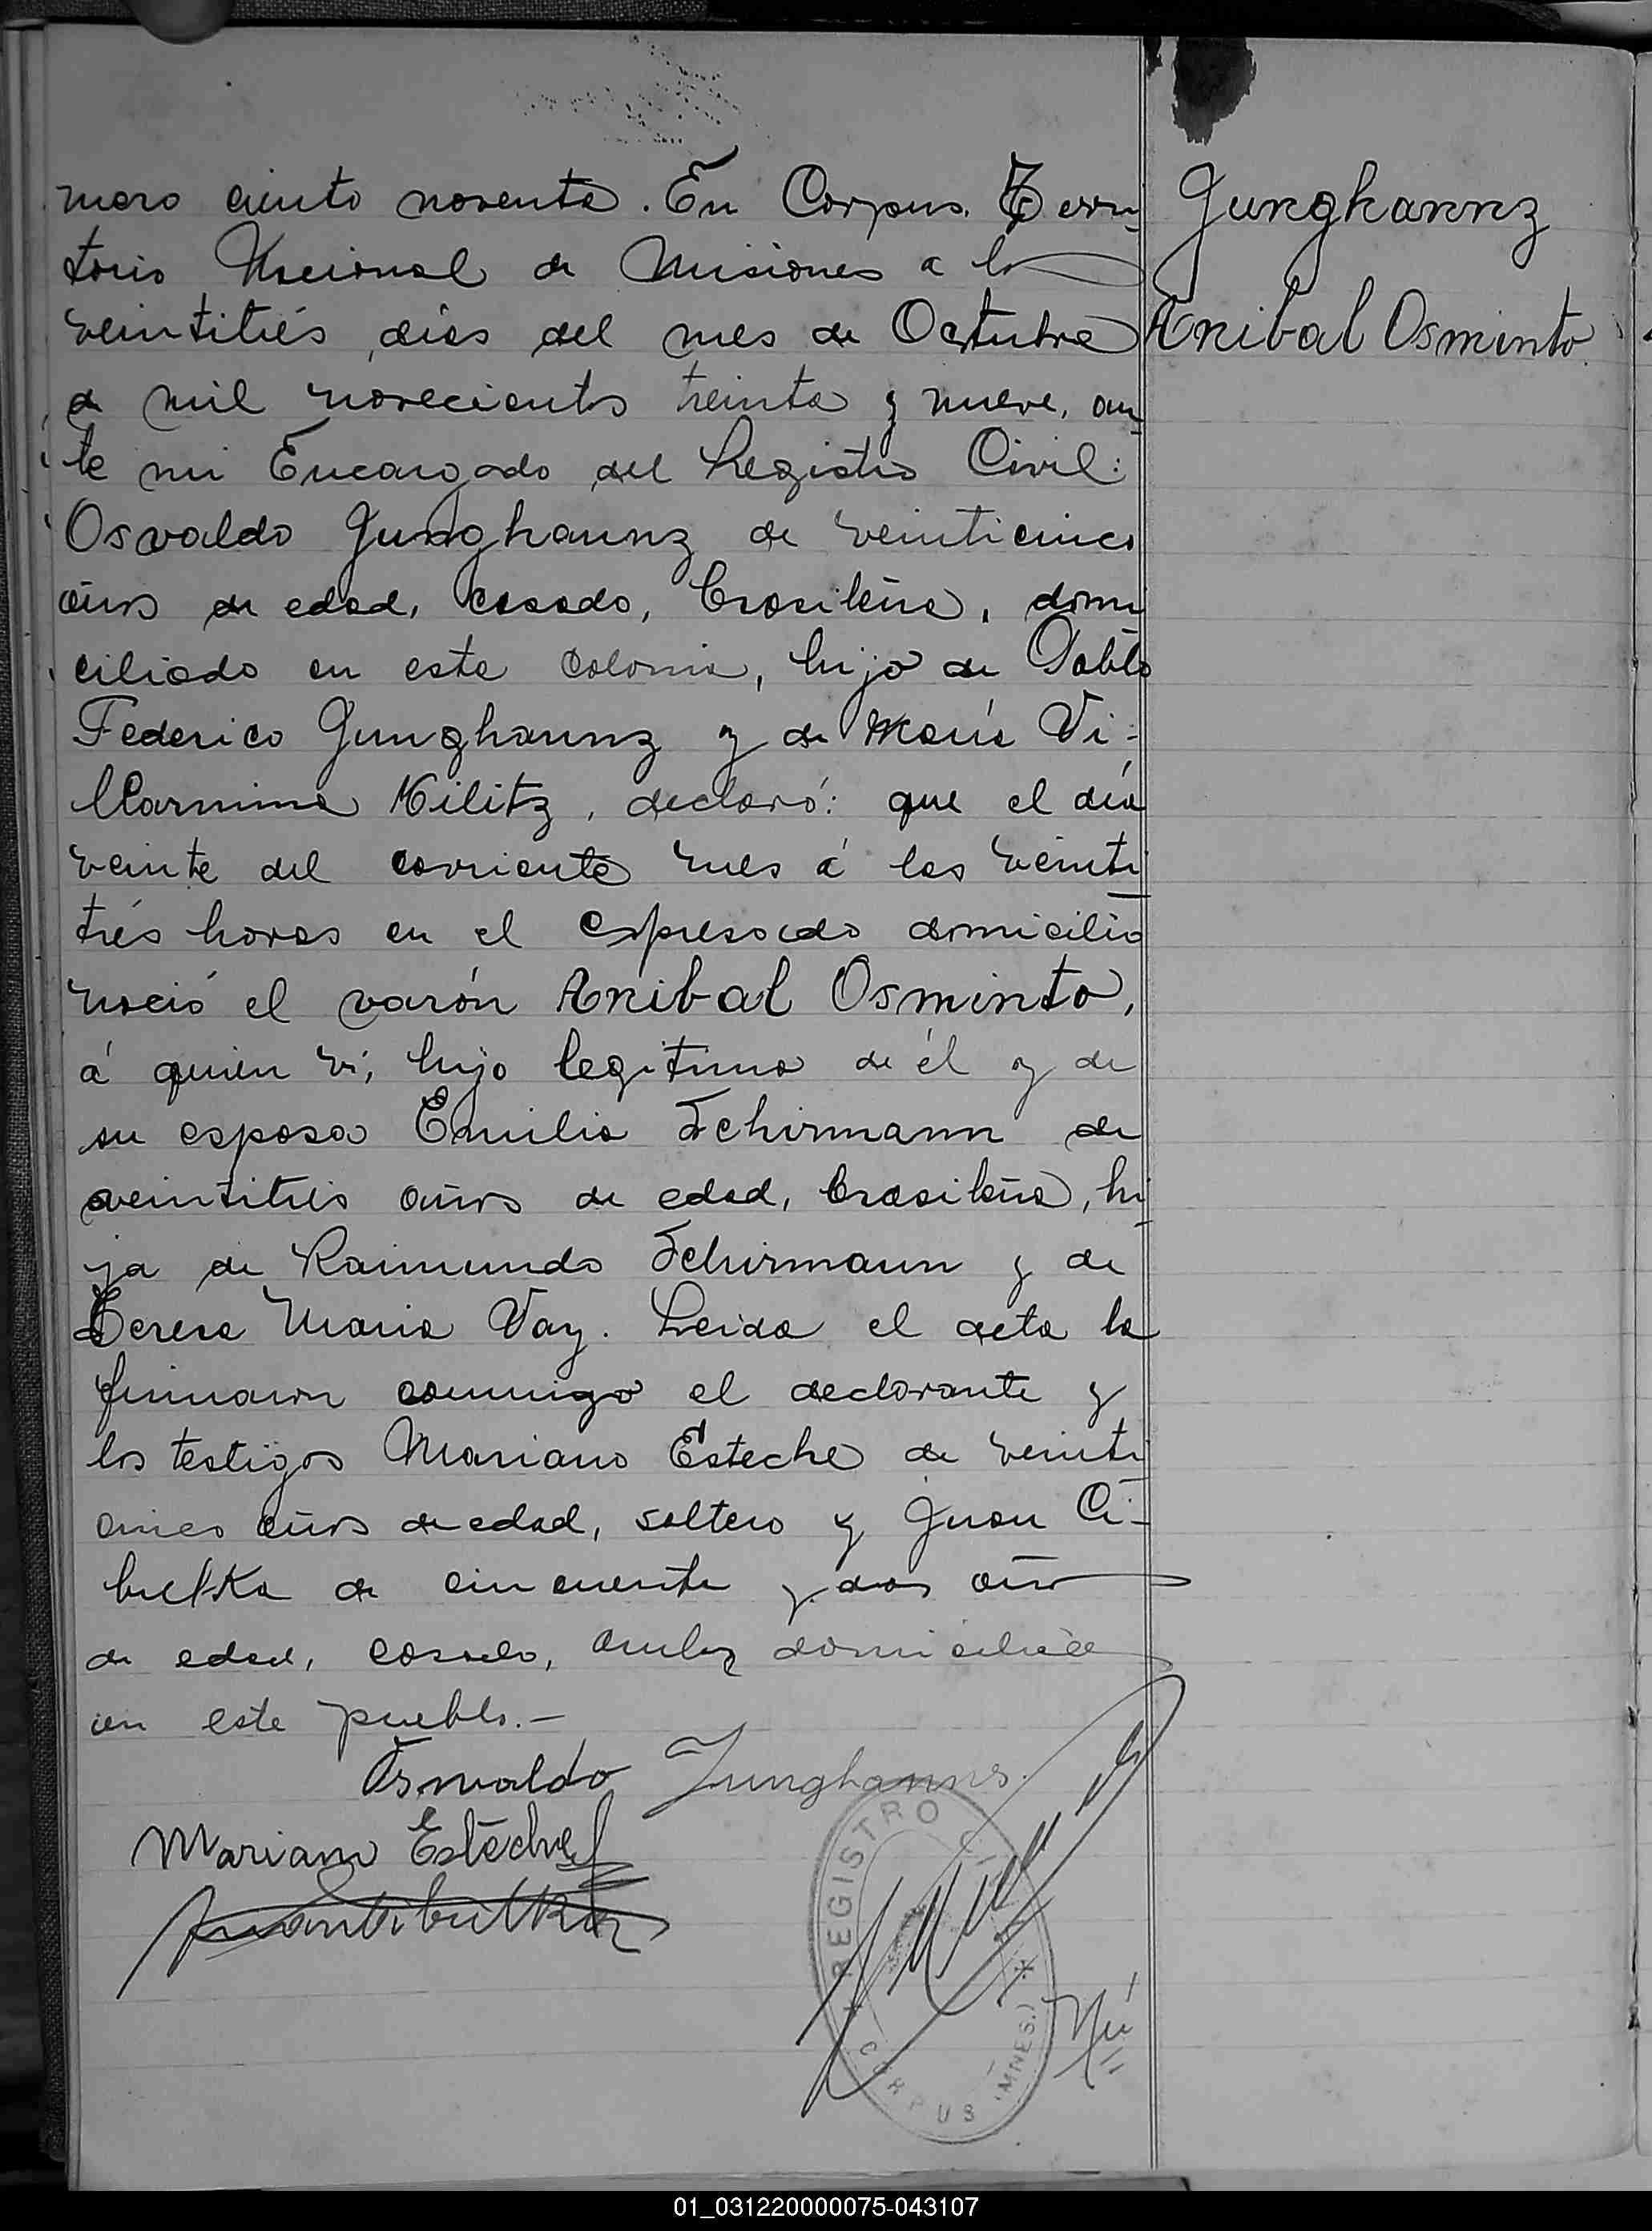 mero ciento noventa. En Corpus, Terri-
torio Nacional de Misiones a los
veintitrés dias del mes de Octubre
de mil novecientos treinta y nueve, an-
te mi Encargado del Registro Civil:
Osvaldo Junghannz de veinticinco
años de edad, casado, brasileño, domi-
ciliado en esta colonia, hijo de Pablo
Federico Junghannz y de María Vi-
llarmina Kilitz, declaró: que el día
veinte del corriente mes á las veinti-
trés horas en el espresado domicilio
nació el varón Anibal Osminto,
á quien ví, hijo legitimo de él y de
su esposa Emilia Schirmann de
veintitrés años de edad, brasileña, hi-
ja de Raimundo Schirmann y de
Teresa Maria Vay. Leida el acta la
firmaron conmigo el declarante y
los testigos Mariano Esteche de veinti-
cinco años de edad, soltero y Juan Ci-
bulka de cincuenta y dos años
de edad, casado, ambos domiciliados
en este pueblo.-
Osvaldo Junghanns.
Mariano Esteche
Juan Cibulka
Junghannz
Anibal Osminto
REGISTRO
CORPUS (MNES.)
01_031220000075-043107